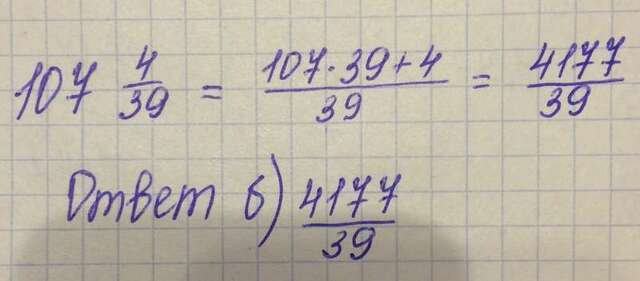 107 4/39 = (107·39+4)/39 = 4177/39
Ответ б) 4177/39